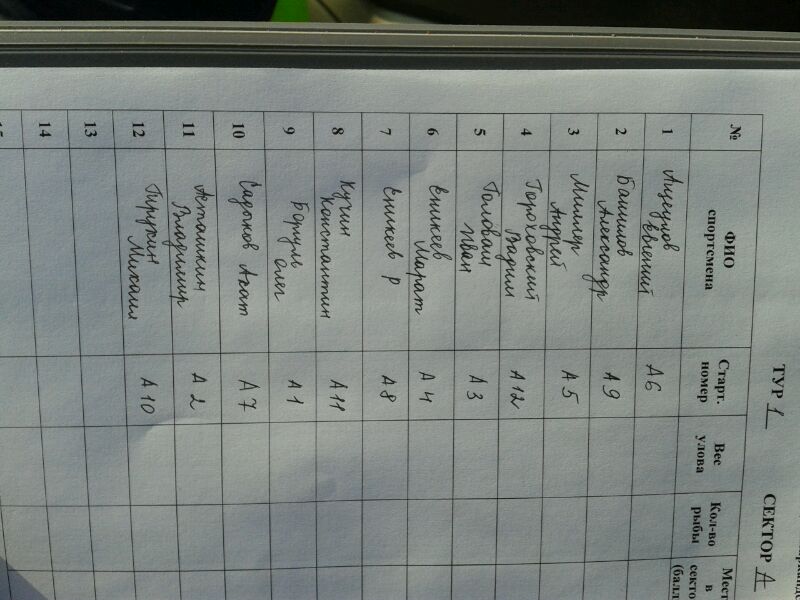 ТУР 1 СЕКТОР А
№ ФИО спортсмена Старт. номер Вес улова Кол-во рыбы Мест в секто (балл
1 Евгений А6
2 Башилов Александр А9
3 Миллер Андрей А5
4 Гороховский Вадим А12
5 Головаш Иван А3
6 Еникеев Марат А4
7 Еникеев Р А8
8 Кучин Константин А11
9 Боруль Олег А1
10 Садыков Ахат А7
11 Асташкин Владимир А2
12 Михаил А10
13
14
15